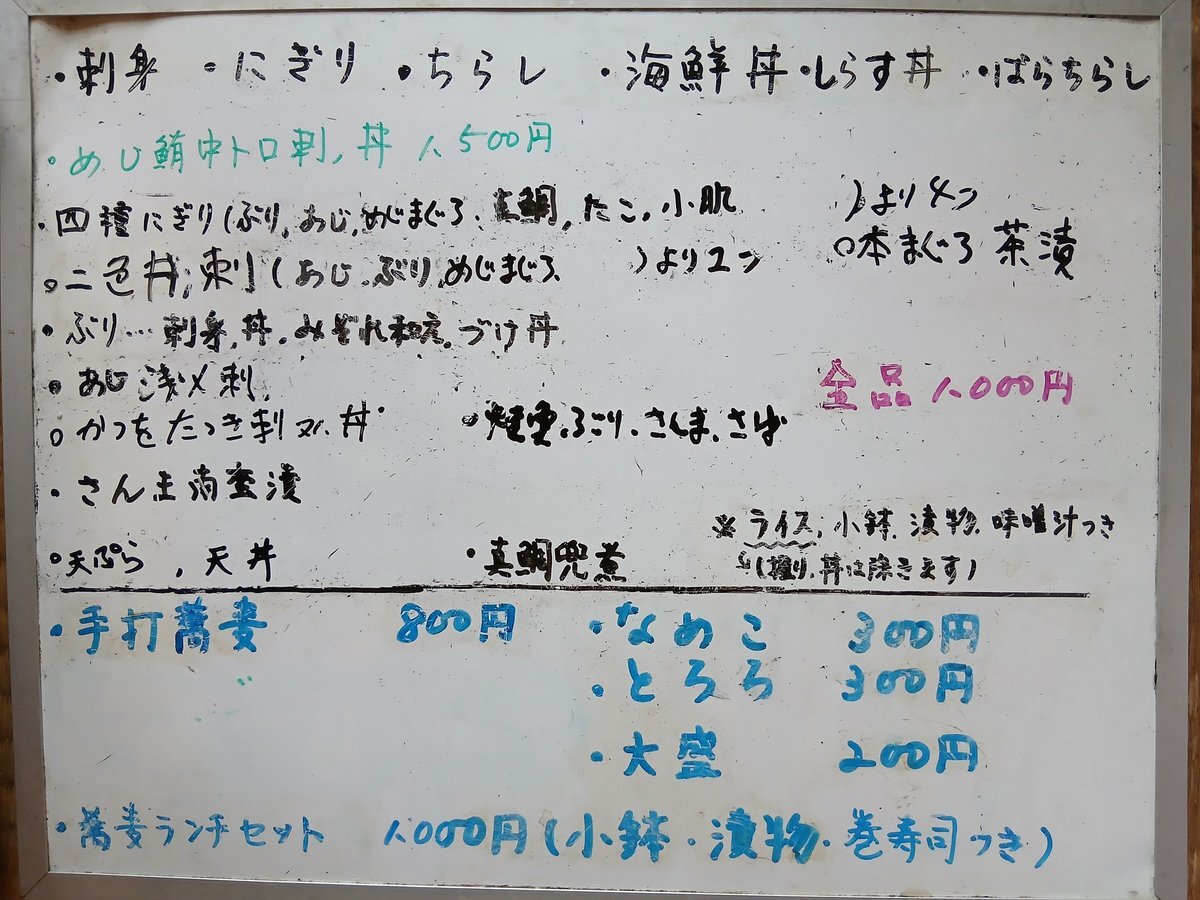 ・刺身 ・にぎり ・ちらし ・海鮮丼・しらす丼 ・ばらちらし
・めじ鮪中トロ刺、丼 1,500円
・四種にぎり(ぶり、あじ、めじまぐろ、真鯛、たこ、小肌 )より4つ
・二色丼、刺(あじ、ぶり、めじまぐろ )より2つ
○本まぐろ 茶漬
・ぶり…刺身、丼、みぞれ和え、づけ丼
・あじ 浅〆刺
全品 1,000円
○かつをたつき刺 又ハ丼
・燻 ぶり、さんま、さば
・さんま 漬
※ライス、小鉢、漬物、味噌汁つき
(握り、丼は除きます)
・天ぷら、天丼
・真鯛兜煮
・手打蕎麦 800円
・なめこ 300円
・とろろ 300円
・大盛 200円
・蕎麦ランチセット 1,000円(小鉢・漬物・巻寿司つき)